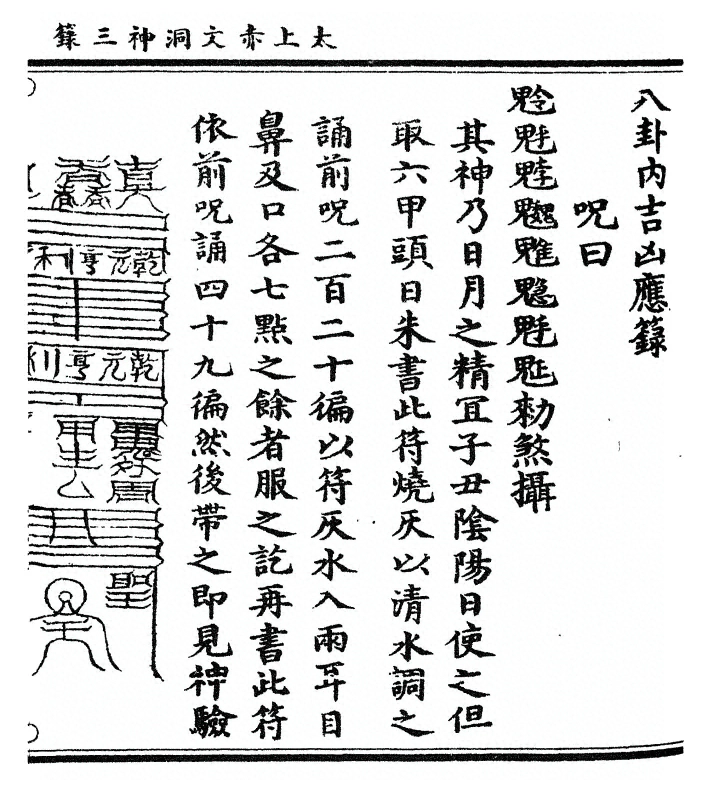 太上赤文洞神三籙
八卦内吉凶應籙
呪曰
勑煞攝
其神乃日月之精冝子丑陰陽日使之但
取六甲頭日朱書此符燒灰以清水調之
誦前呪二百二十徧以符灰水入兩耳目
鼻及口各七點之餘者服之訖再書此符
依前呪誦四十九徧然後帶之即見神驗
乾元亨利
乾元亨利
聖